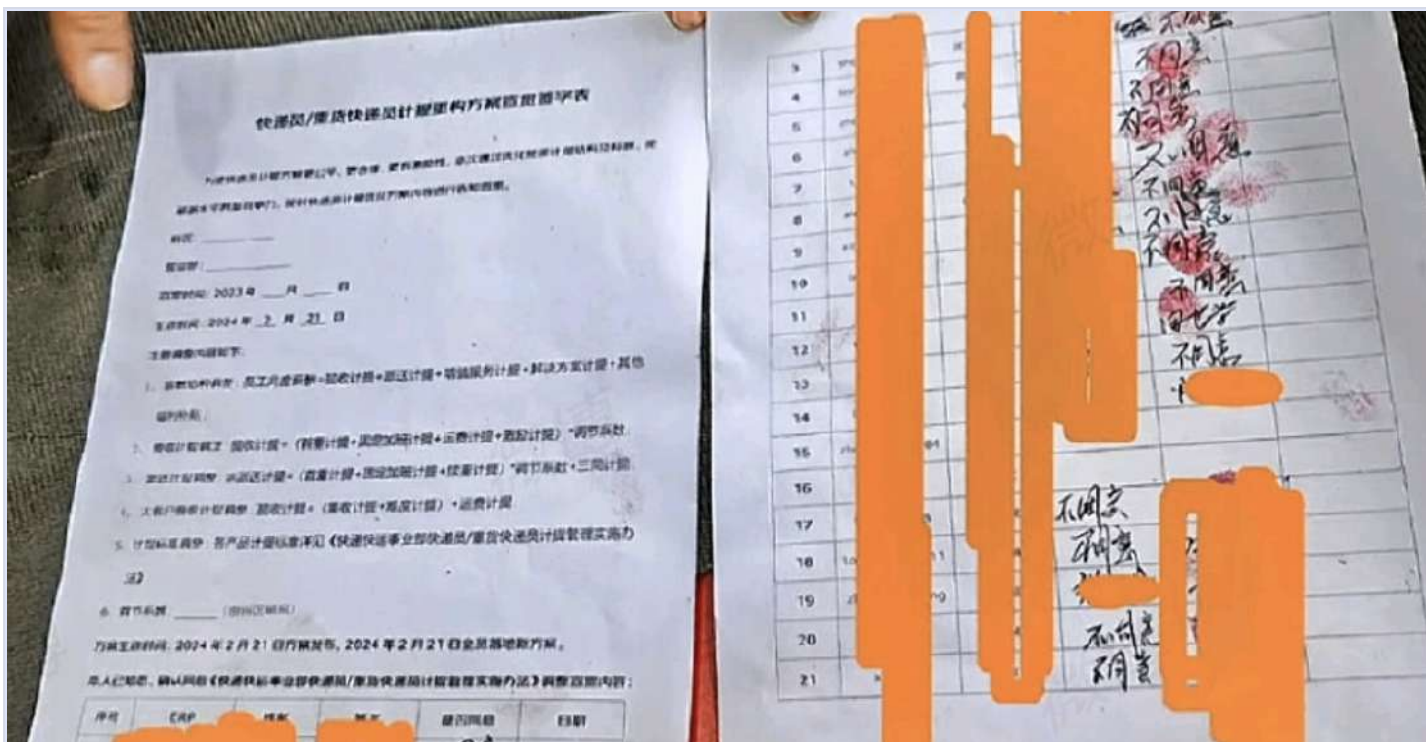 快递员/重货快递员计提重构方案宣贯签字表
为使快递员计提方案更公平、更合理、更有激励性，
现针对快递员计提重构方案内容进行告知宣贯。
营业部：
宣贯时间：2023年 月 日
生效时间：2024年 2 月 21 日
主要调整内容如下：
1、薪酬结构调整：员工月度薪酬=揽收计提+派送计提+增值服务计提+解决方案计提+其他
福利补贴；
2、揽收计提调整：揽收计提=（首重计提+固定加班计提+运费计提+激励计提）*调节系数；
3、派送计提调整：派送计提=（首重计提+固定加班计提+续重计提）*调节系数+三同计提；
4、大客户揽收计提调整：揽收计提=（集收计提+难度计提）+运费计提
5、计提标准调整：各产品计提标准详见《快递快运事业部快递员/重货快递员计提管理实施办
法》
6、调节系数：
方案生效时间：2024年2月21日方案发布，2024年2月21日全员落地新方案。
本人已知悉、确认同意《快递快运事业部快递员/重货快递员计提管理实施办法》调整宣贯内容：
序号 ERP 姓名 签名 是否同意 日期
不同意
3 不同意
4 不同意
5 不同意
6 不同意
7 不同意
8 不同意
9 不同意
10 不同意
11
12 不同意
13
14
15
16
17 不同意
18 不同意
19
20 不同意
21 不同意